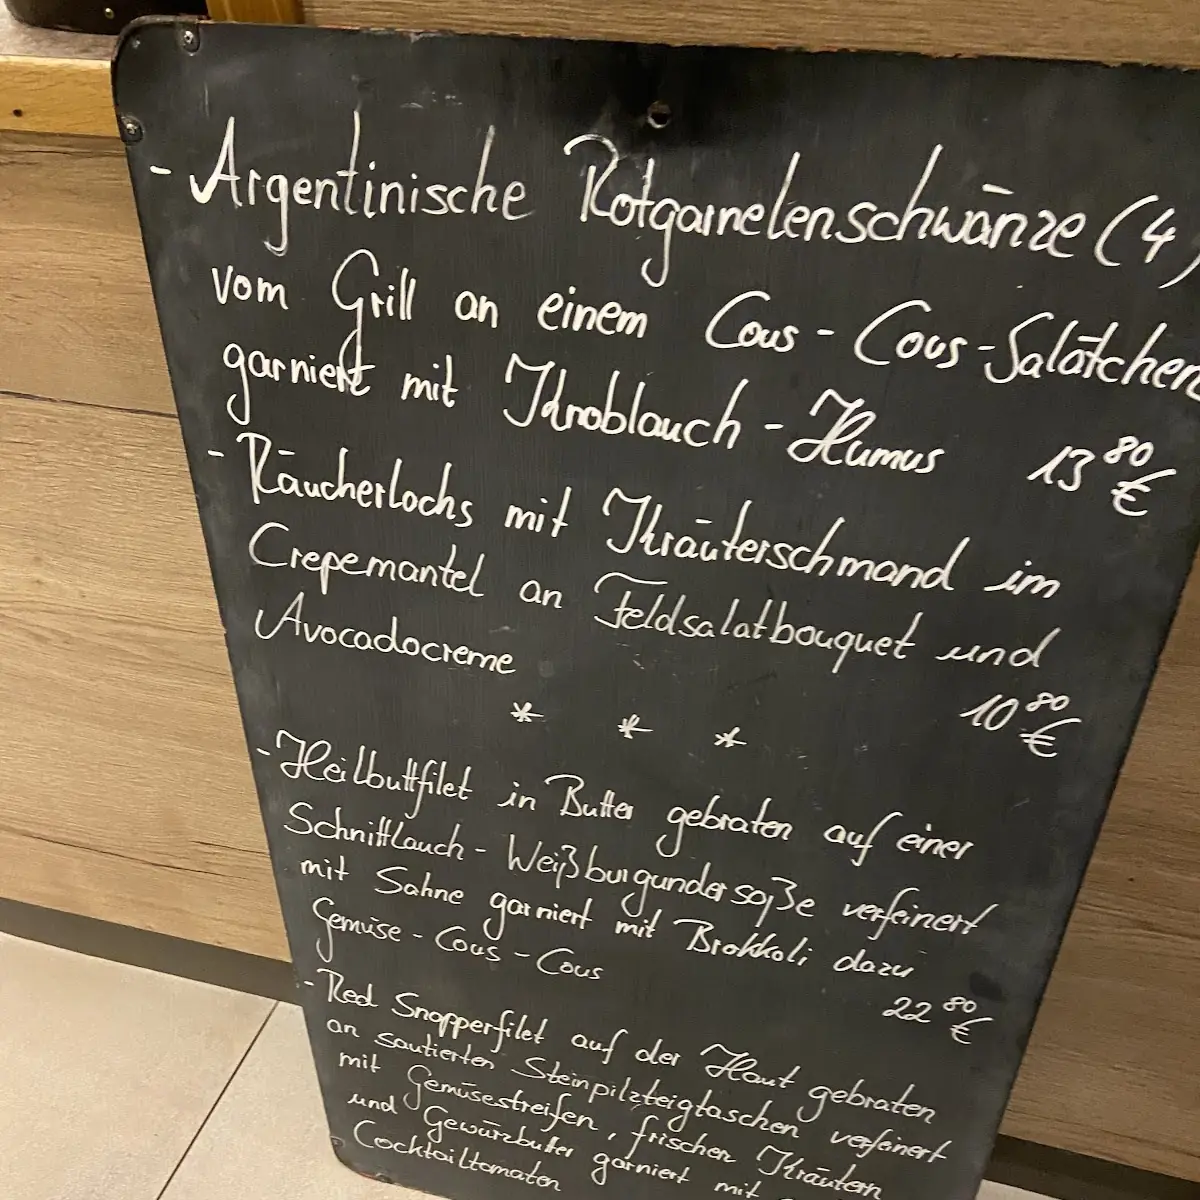 - Argentinische Rotgarnelenschwänze (4)
vom Grill an einem Cous - Cous - Salätchen
garniert mit Knoblauch - Humus 13 80 €
- Räucherlachs mit Kräuterschmand im
Crepemantel an Feldsalatbouquet und
Avocadocreme
10 80 €
* * *
- Heilbuttfilet in Butter gebraten auf einer
Schnittlauch - Weißburgundersoße verfeinert
mit Sahne garniert mit Brokkoli dazu
Gemüse - Cous - Cous
22 80 €
- Red Snapperfilet auf der Haut gebraten
an sautierten Steinpilzteigtaschen verfeinert
mit Gemüsestreifen, frischen Kräutern
und Gewürzbutter garniert mit
Cocktailtomaten